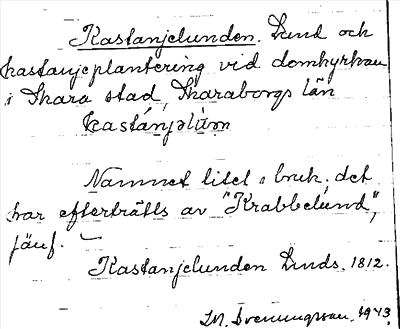 Kastanjelunden. Lund och
kastanjeplantering vid domkyrkan
i Skara stad, Skaraborgs län
kastánjəlùm
Namnet litet i bruk; det
har efterträtts av "Krabbelund",
jämf. –
Kastanjelunden Linds. 1812.
M. Svenungsson. 1943.